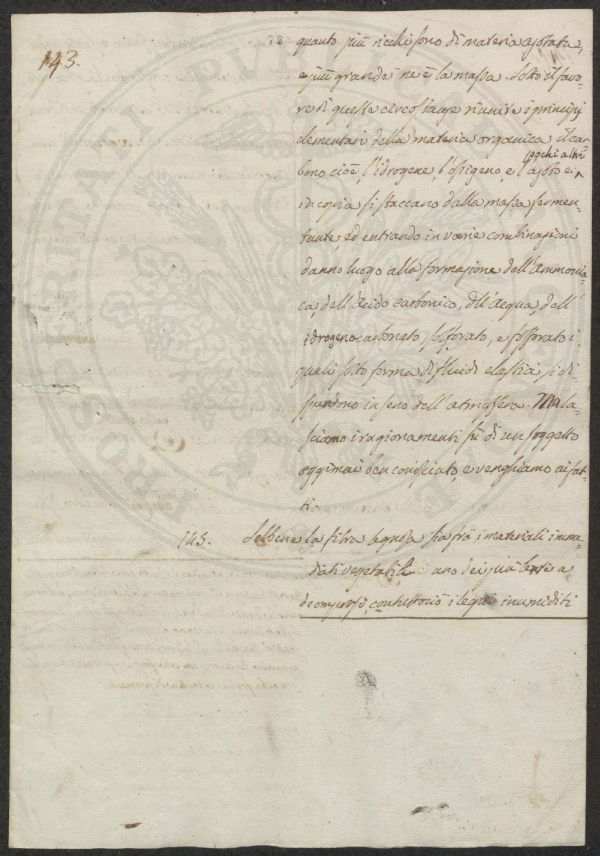 143.
78
quanto più ricchi sono di materia azotata,
e più grande ne è la massa. Sotto il favo-
re di queste circostanze riunite i principj
elementari della materia organica il car-
pochi altri
bono cioè, l'idrogene, l'ossigeno, e l'azoto e
in copia si staccano dalla massa fermen-
tante, ed entrando in varie combinazioni
danno luogo alla formazione dell'Ammonia-
ca, dell'Acido carbonico, dell'Acqua, dell'
idrogeno carbonato, solforato, e fosforato i
quali sotto forma di fluidi elastici si di-
sperdono in seno dell'atmosfera. Ma la-
sciamo i ragionamenti su di un soggetto
oggimai ben conosciuto, e venghiamo ai fat-
ti
143. Sebbene la fibra legnosa sia frà i materiali imme-
diati vegetabili uno dei più lenti a
decomporsi, contuttociò i legni inumiditi